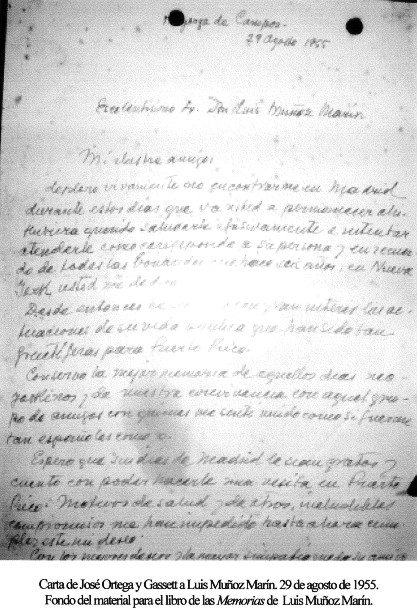 de Campos.
29 Agosto 1955
Excelentísimo Sr. Don Luis Muñoz Marín
Mi ilustre amigo:
deploro vivamente no encontrarme en Madrid
durante estos días que va usted a permanecer ahí.
Hubiera querido saludarle efusivamente e intentar
atenderle como corresponde a su persona y en
de todas las bondades que hace seis años, en Nueva
York, usted me
Desde entonces interés las
de su vida que han sido tan
fructíferas para Puerto Rico.
Conservo la mejor memoria de aquellos días neo-
yorkinos y de nuestra convivencia con aquel gru-
po de amigos con quienes me sentí unido como si fueran
tan españoles como yo.
Espero que sus días de Madrid le sean gratos y
cuento con poder hacerle una visita en Puerto
Rico. Motivos de salud y de otros, ineludibles
compromisos me han impedido hasta ahora cum-
plir este mi deseo.
Con los mejores deseos y la mayor
Carta de José Ortega y Gassett a Luis Muñoz Marín. 29 de agosto de 1955.
Fondo del material para el libro de las Memorias de Luis Muñoz Marín.